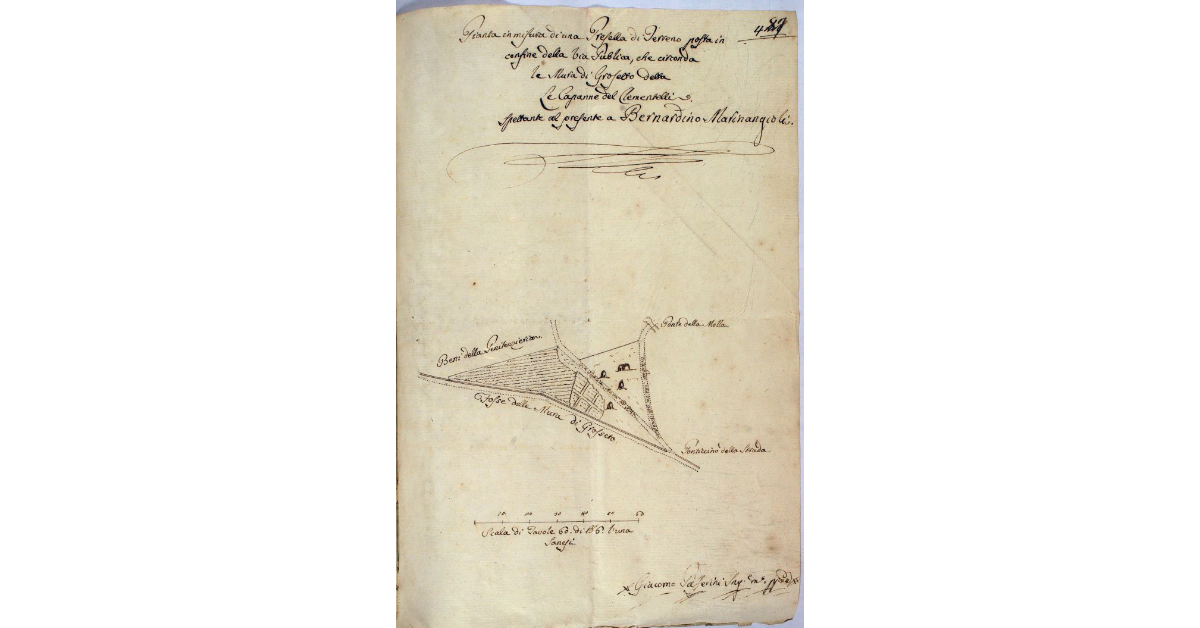 Pianta in misura di una Presella di Terreno posta in
confine della Via Publica, che circonda
le Mura di Grosseto detta
Le Capanne del Clementelli
spettante al presente a Bernardino Marinangioli.
Ponte della Molla
Beni della
Fosse delle Mura di Grosseto
Ponticino della Strada
10 20 30 40 50 60
Scala di Tavole 60. di B. 6. l'una
Sanesi
Giacomo Passerini Ing.